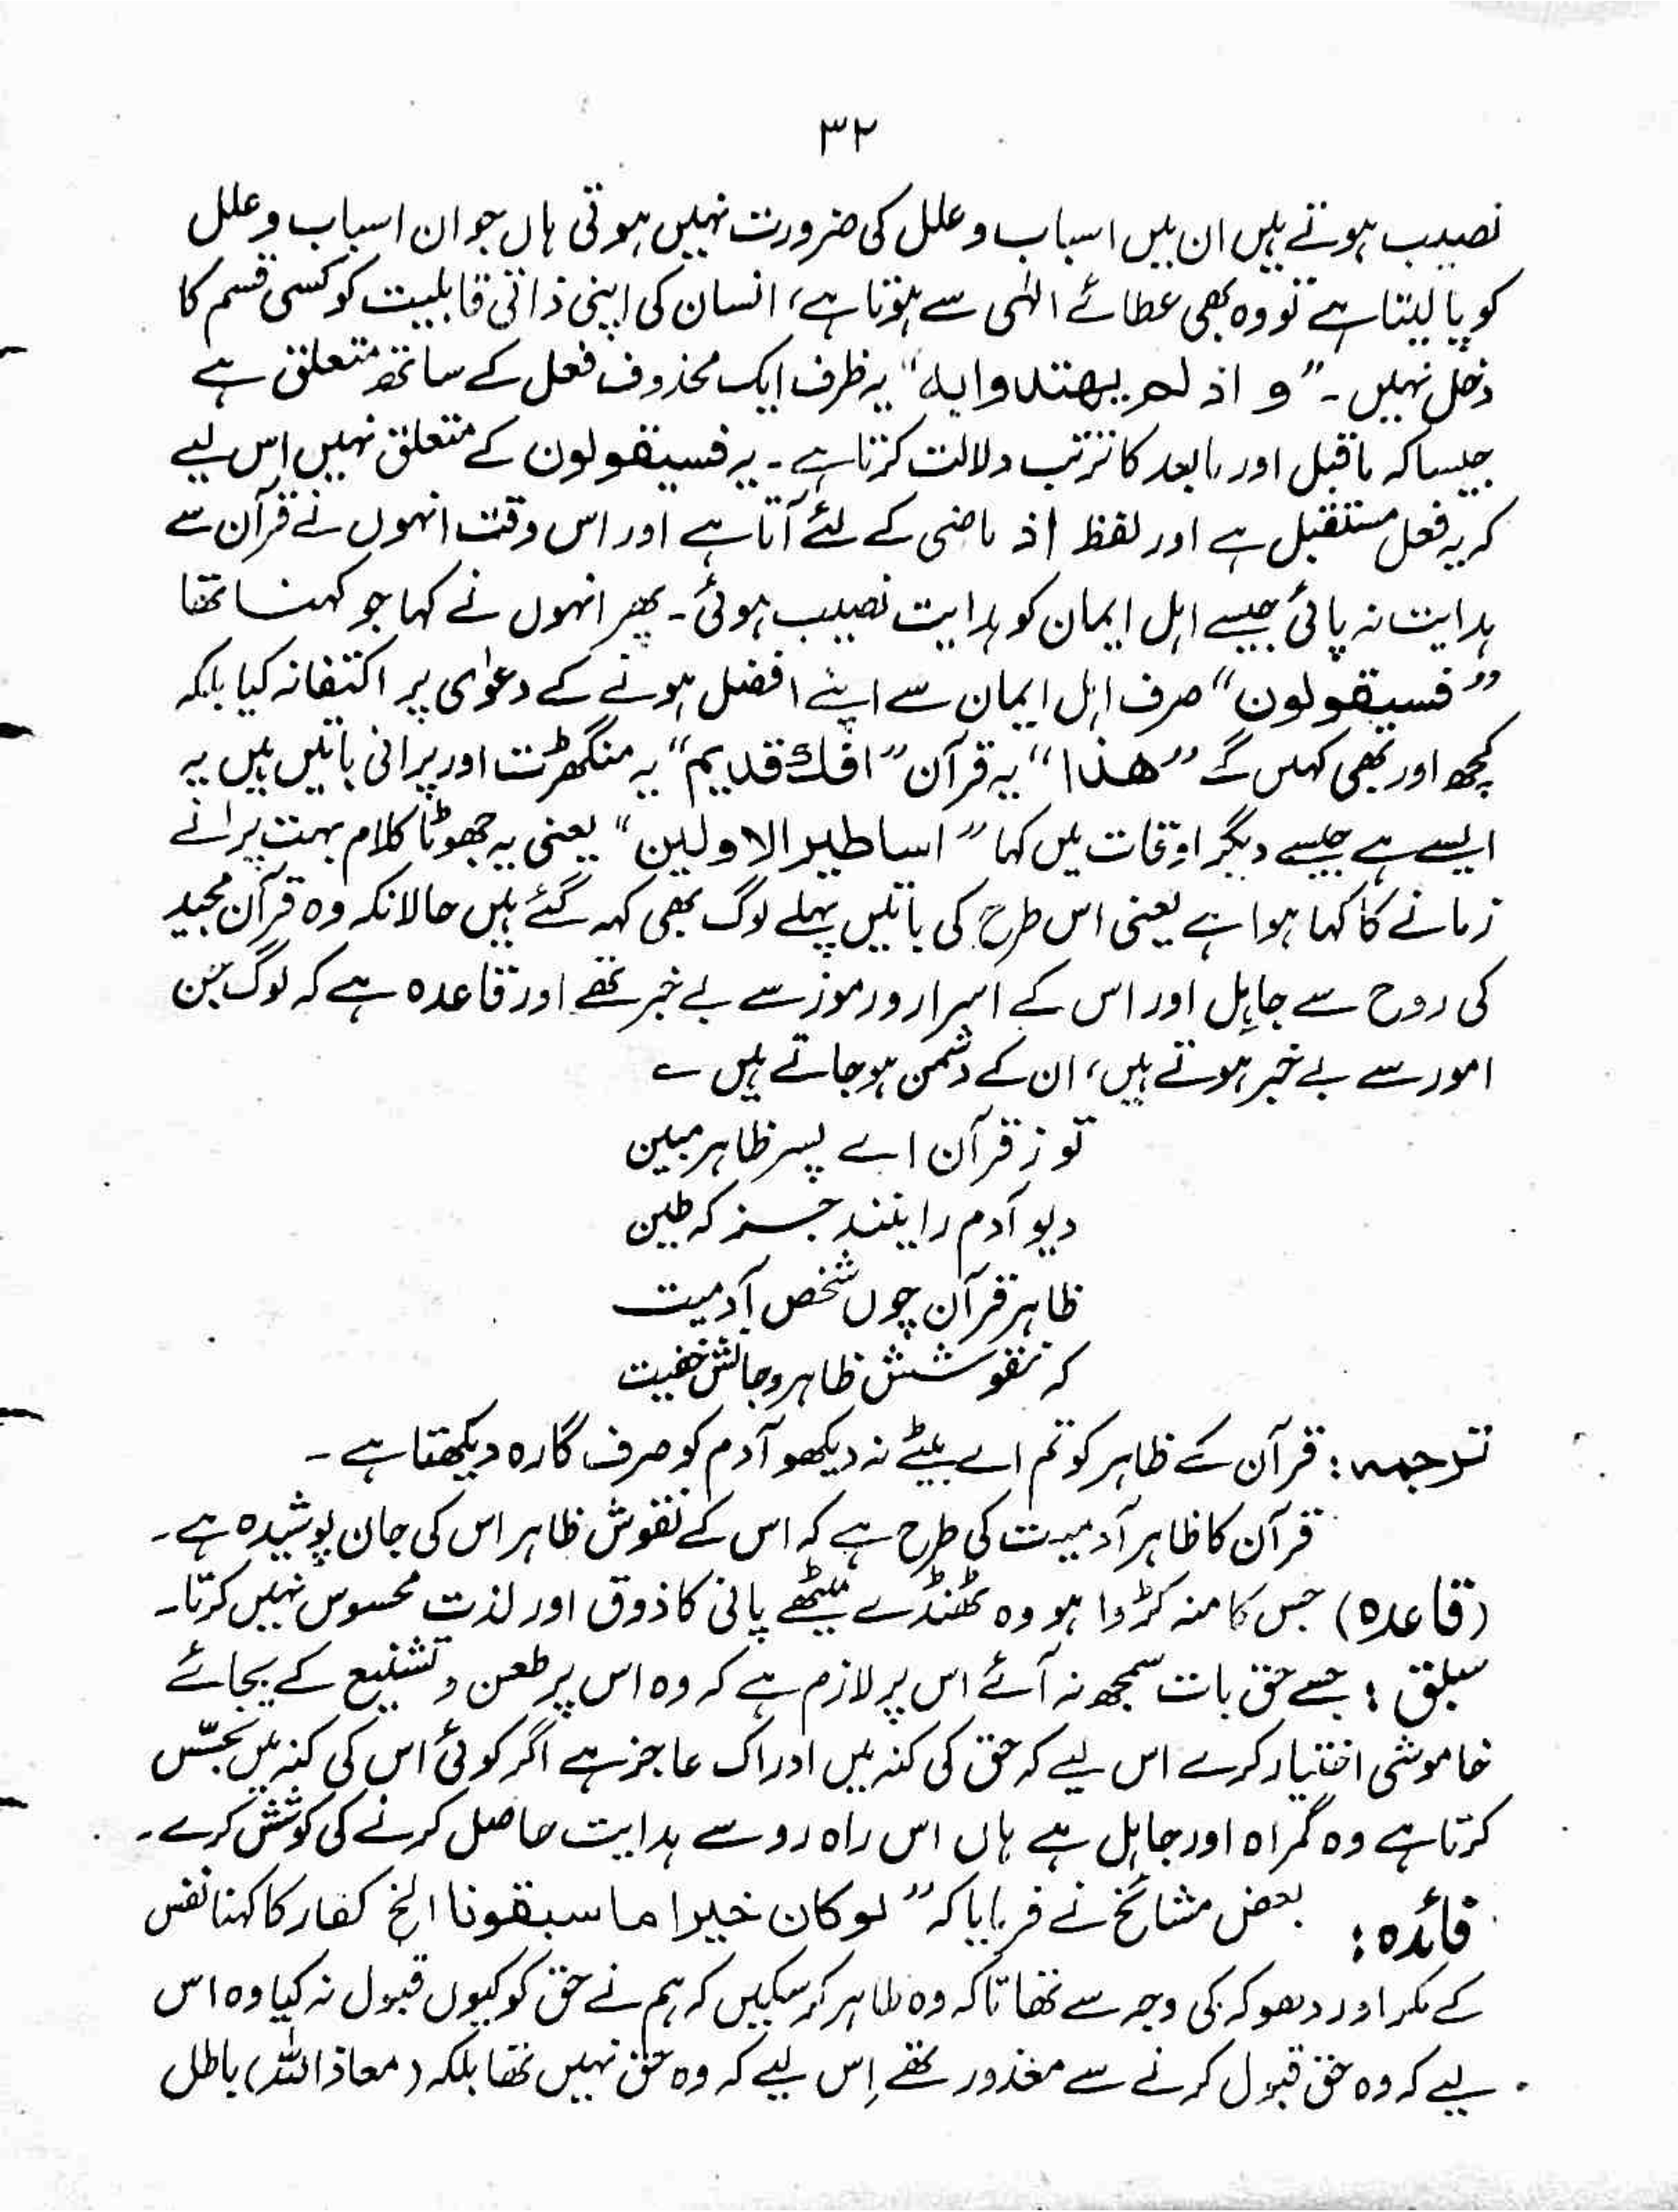 ۳۲
نصیب ہوتے ہیں ان میں اسباب و علل کی ضرورت نہیں ہوتی ہاں جو ان اسباب و علل
کو پا لیتا ہے تو وہ بھی عطائے الٰہی سے ہوتا ہے، انسان کی اپنی ذاتی قابلیت کو کسی قسم کا
دخل نہیں۔ ”و اذ لم یھتدوا بہ“ یہ ظرف ایک محذوف فعل کے ساتھ متعلق ہے
جیسا کہ ماقبل اور مابعد کا ترتب دلالت کرتا ہے۔ یہ فسیقولون کے متعلق نہیں اس لیے
کہ یہ فعل مستقبل ہے اور لفظ اذ ماضی کے لئے آتا ہے اور اس وقت انہوں نے قرآن سے
ہدایت نہ پائی جیسے اہل ایمان کو ہدایت نصیب ہوئی۔ پھر انہوں نے کہا جو کہنا تھا
”فسیقولون“ صرف اہل ایمان سے اپنے افضل ہونے کے دعوٰی پر اکتفا نہ کیا بلکہ
کچھ اور بھی کہیں گے ”ھذا“ یہ قرآن ”افك قدیم“ یہ منگھڑت اور پرانی باتیں ہیں یہ
ایسے ہے جیسے دیگر اوقات میں کہا ”اساطیر الاولین“ یعنی یہ جھوٹا کلام بہت پرانے
زمانے کا کہا ہوا ہے یعنی اس طرح کی باتیں پہلے لوگ بھی کہہ گئے ہیں حالانکہ وہ قرآن مجید
کی روح سے جاہل اور اس کے اسرار و رموز سے بے خبر تھے اور قاعدہ ہے کہ لوگ جن
امور سے بے خبر ہوتے ہیں، ان کے دشمن ہو جاتے ہیں ؎
تو ز قرآن اے پسر ظاہر مبین
دیو آدم را بیند جز کہ طین
ظاہر قرآن چوں شخص آدمیت
کہ نقوشش ظاہر و جانش خفیت
ترجمہ: قرآن کے ظاہر کو تم اے بیٹے نہ دیکھو آدم کو صرف گارہ دیکھتا ہے۔
قرآن کا ظاہر آدمیت کی طرح ہے کہ اس کے نقوش ظاہر اس کی جان پوشیدہ ہے۔
(قاعدہ) جس کا منہ کڑوا ہو وہ ٹھنڈے میٹھے پانی کا ذوق اور لذت محسوس نہیں کرتا۔
سبق: جسے حق بات سمجھ نہ آئے اس پر لازم ہے کہ وہ اس پر طعن و تشنیع کے بجائے
خاموشی اختیار کرے اس لیے کہ حق کی کنہ میں ادراک عاجز ہے اگر کوئی اس کی کنہ میں تجسّس
کرتا ہے وہ گمراہ اور جاہل ہے ہاں اس راہ رو سے ہدایت حاصل کرنے کی کوشش کرے۔
فائدہ: بعض مشائخ نے فرمایا کہ ”لوکان خیرا ما سبقونا الخ کفار کا کہنا نفس
کے مکر اور دھوکہ کی وجہ سے تھا تاکہ وہ ظاہر کر سکیں کہ ہم نے حق کو کیوں قبول نہ کیا وہ اس
لیے کہ وہ حق قبول کرنے سے معذور تھے اِس لیے کہ وہ حق نہیں تھا بلکہ (معاذ اللہ) باطل